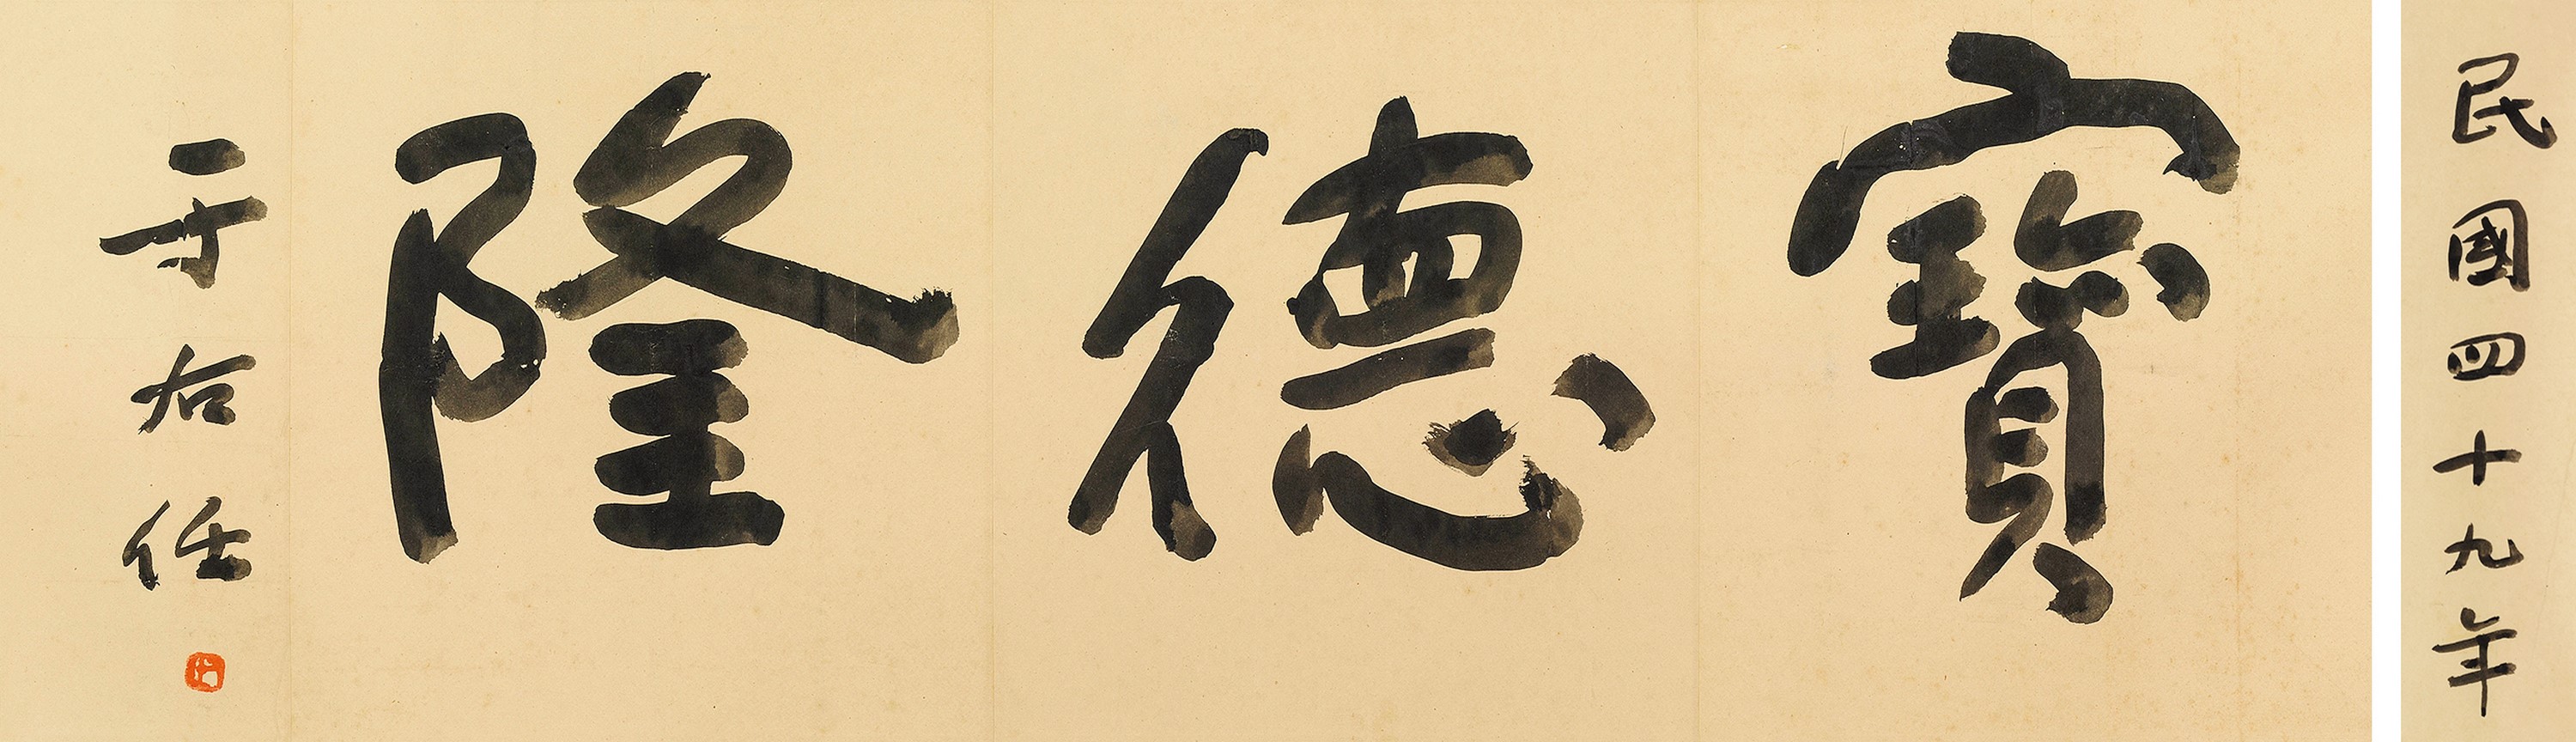 民國四十九年
寶德隆
于右任